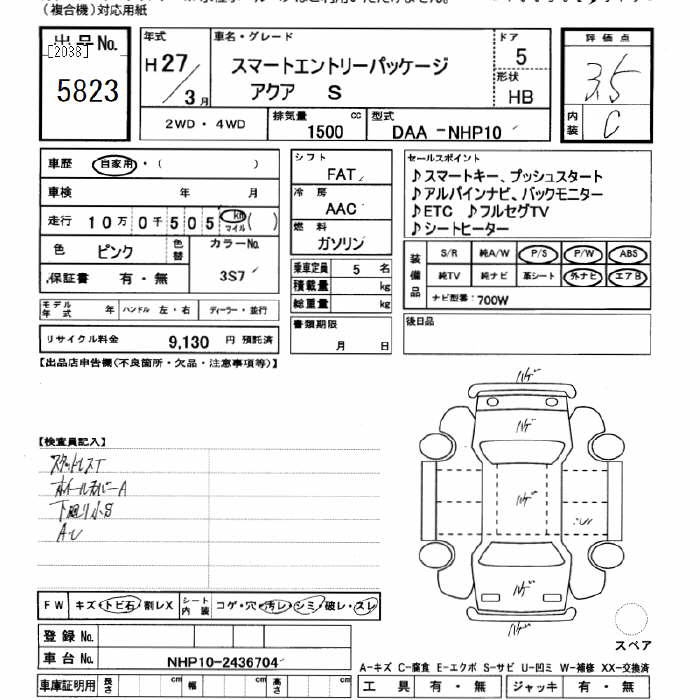 (複合機)対応用紙
出品No.
[2038]
5823
年式
H27/3月
車名・グレード
スマートエントリーパッケージ
アクア S
ドア
5
形状
HB
評価点
3.5
内装
C
2WD・4WD
排気量
1500 cc
型式
DAA-NHP10
車歴 自家用・( )
車検 年 月
走行 10万0千505 km マイル ( )
色 ピンク 色替
カラーNo.
3S7
保証書 有・無
モデル年式 年 ハンドル 左・右 ディーラー・並行
リサイクル料金 9,130 円 預託済
シフト
FAT
冷房
AAC
燃料
ガソリン
乗車定員 5 名
積載量 kg
総重量 kg
書類期限
月 日
セールスポイント
♪スマートキー、プッシュスタート
♪アルパインナビ、バックモニター
♪ETC ♪フルセグTV
♪シートヒーター
装備品
S/R 純A/W P/S P/W ABS
純TV 純ナビ 革シート 外ナビ エアB
ナビ型番:700W
後日品
【出品店申告欄(不良箇所・欠品・注意事項等)】
【検査員記入】
スタットレスT
ホイールカバーA
下廻り小S
AU
ハゲ
ハゲ
ハゲ
ハゲ
ハゲ
スペア
FW キズ・トビ石・割レX
シート内装 コゲ・穴・汚レ・シミ・破レ・スレ
登録No.
車台No. NHP10-2436704
車庫証明用 長さ cm 幅 cm 高さ cm
A-キズ C-腐食 E-エクボ S-サビ U-凹ミ W-補修 XX-交換済
工具 有・無 ジャッキ 有・無